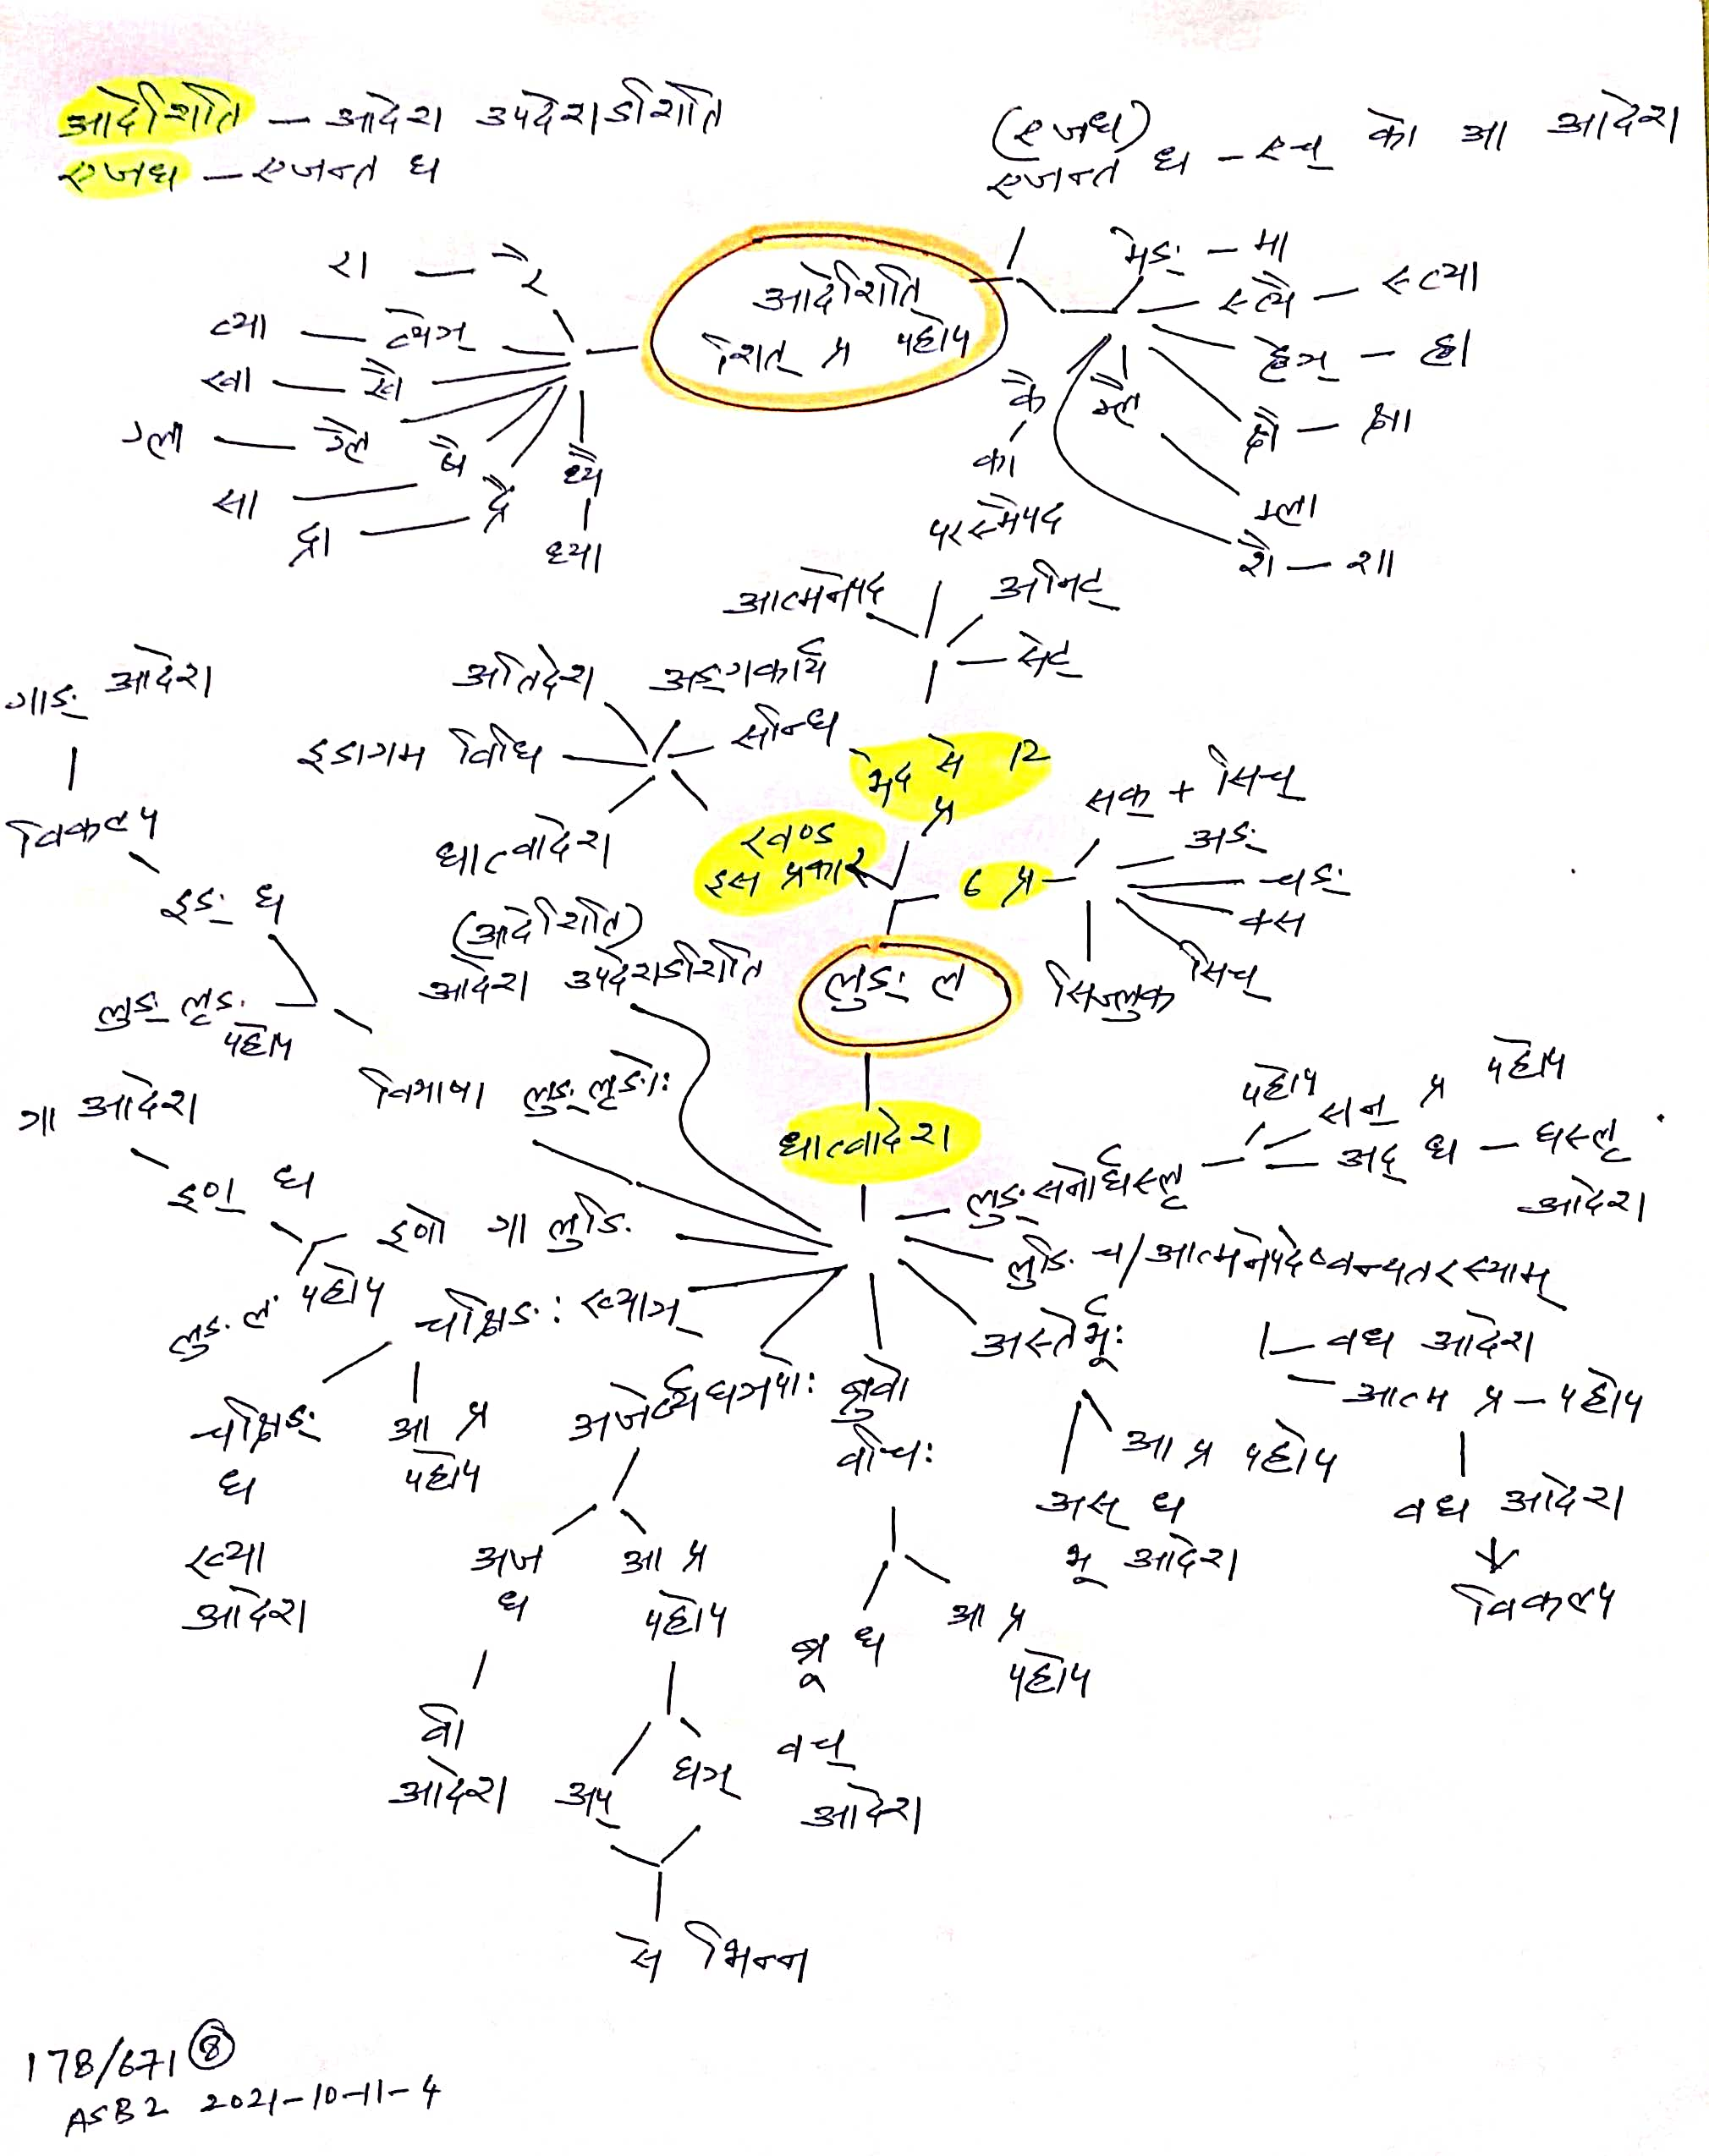 आदेशिति — आदेश उपदेशऽशिति
एजध — एजन्त ध
(एजध)
एजन्त ध – एच् को आ आदेश
आदेशिति
शित् प्र पहोप
रा — रै
त्या — त्यैग्
खा — खै
ग्ला — ग्लै
सा — षै
द्रा — द्रै
ध्यै
ध्या
मेङ् – मा
स्त्यै – स्त्या
ह्वेञ् – ह्वा
क्षै – क्षा
म्लै
म्ला
शै – शा
कै
का
परस्मैपद
आत्मनेपद
अनिट्
सेट्
भेद से 12
प्र
अतिदेश
अङ्गकार्य
सन्धि
इडागम विधि
धात्वादेश
खण्ड
इस प्रकार
6 प्र
सक् + सिच्
अङ्
चङ्
क्स
सिच्
सिज्लुक
लुङ् ल
धात्वादेश
(आदेशिति)
आदेश उपदेशऽशिति
गाङ् आदेश
विकल्प
इङ् ध
लुङ् लृङ्
पहोप
विभाषा लुङ्लृङोः
गा आदेश
इण् ध
लुङ् ल पहोप
इणो गा लुङि
चक्षिङः ख्याञ्
चक्षिङ्
ध
ख्या
आदेश
आ प्र
पहोप
अजेर्व्यघञपोः
अज
ध
वी
आदेश
आ प्र
पहोप
अप्
घञ्
से भिन्न
ब्रुवो
वचिः
ब्रू ध
वच्
आदेश
आ प्र
पहोप
अस्तेर्भूः
आ प्र पहोप
अस् ध
भू आदेश
लुङ्सनोर्घस्लृ
पहोप
सन् प्र पहोप
अद् ध – घस्लृ
आदेश
लुङि च/आत्मनेपदेष्वन्यतरस्याम्
वध आदेश
आत्म प्र – पहोप
वध आदेश
विकल्प
178/671 8
ASB2 2021-10-11-4